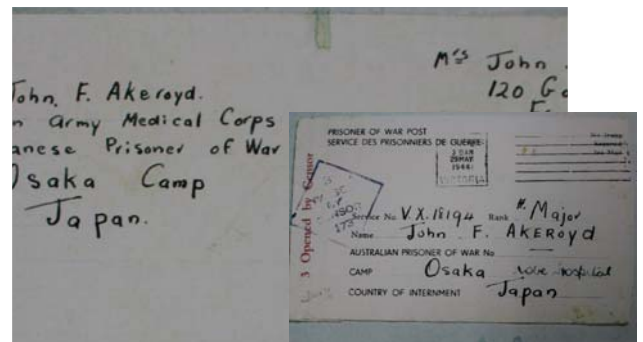 John. F. Akeroyd.
n Army Medical Corps
anese Prisoner of War
Osaka Camp
Japan.
Mrs John
120 G
PRISONER OF WAR POST
SERVICE DES PRISONNIERS DE GUERRE
29 MAY
1944
VICTORIA
3 Opened by Censor
Service No. V.X.18194 Rank Major
Name John F. AKEROYD
AUSTRALIAN PRISONER OF WAR No
CAMP Osaka Kobe hospital
COUNTRY OF INTERNMENT Japan